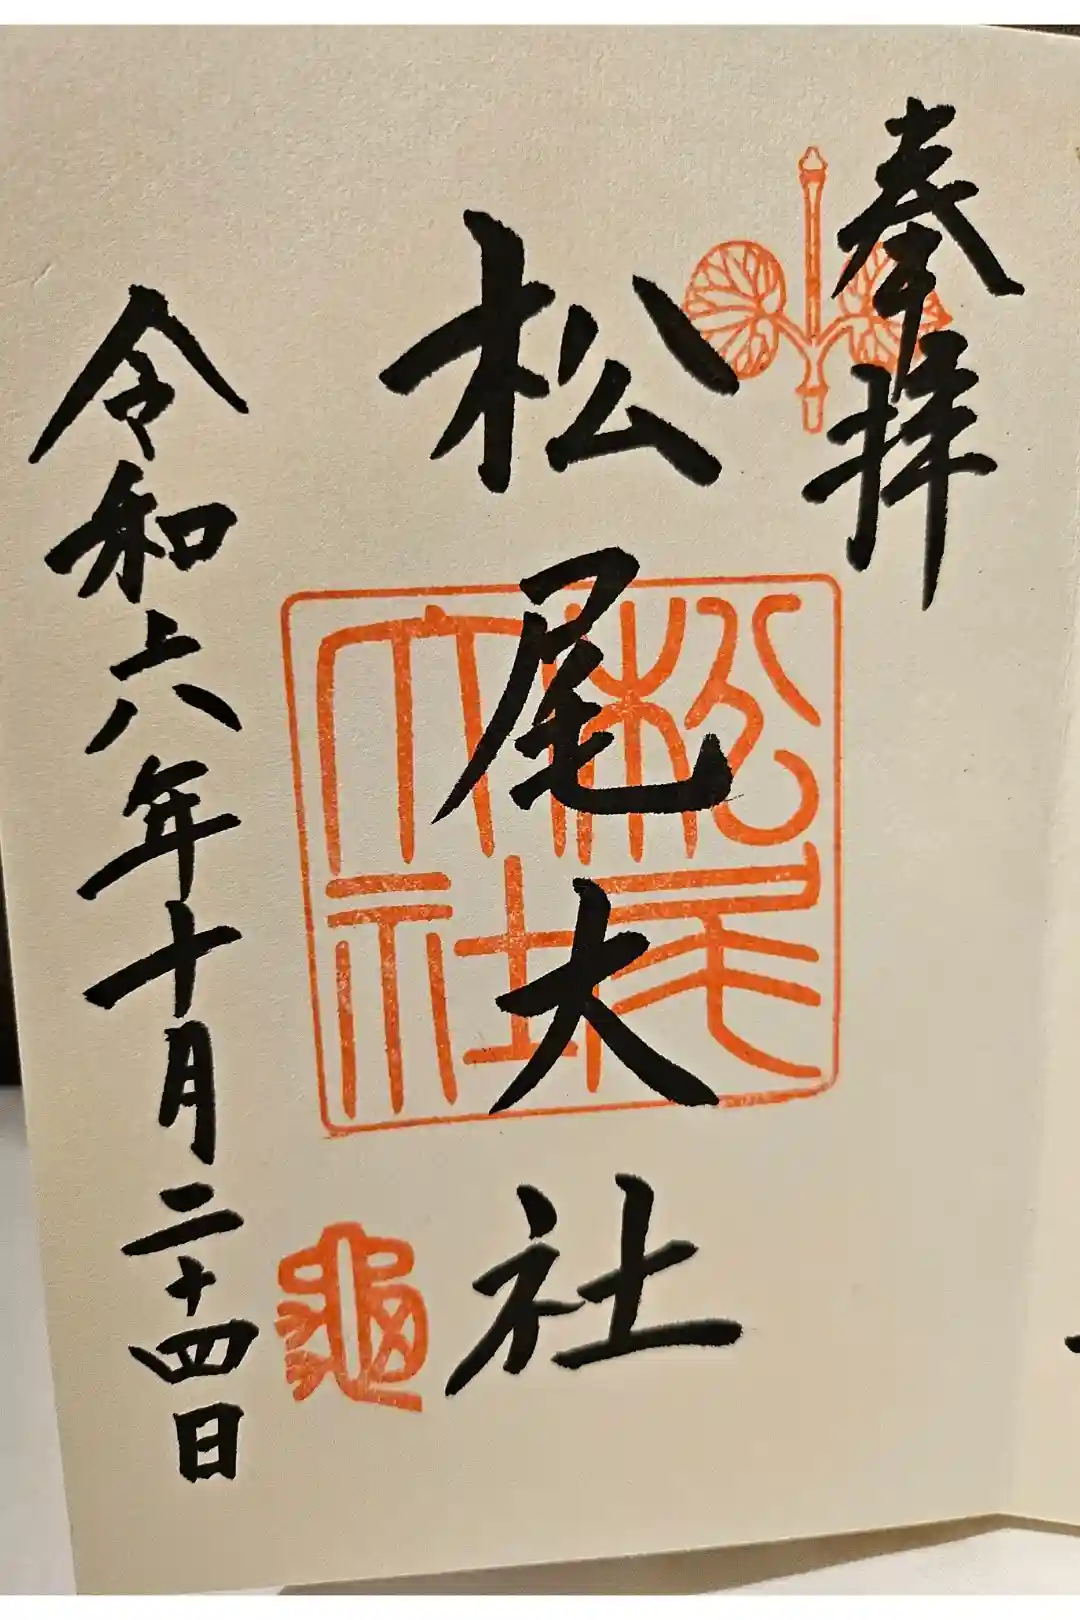 奉拝
松尾大社
松尾
大社
龜
令和六年十月二十四日